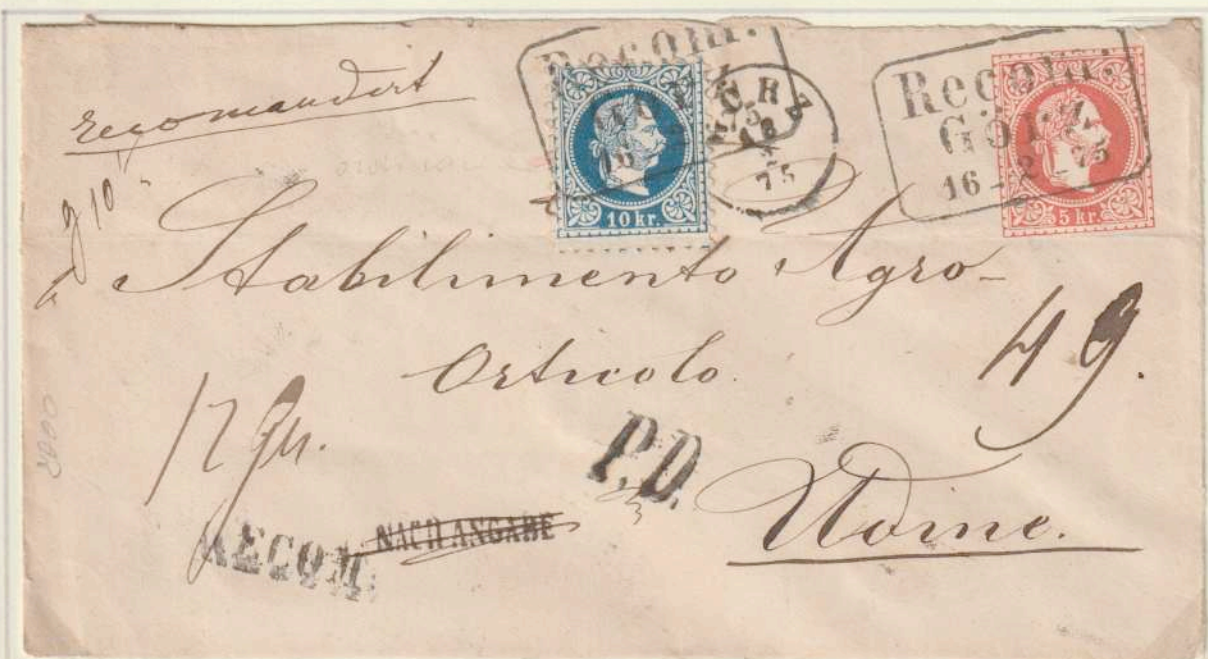 Recomandirt
Recom.
Görz
16 - 2 - 75
10 kr.
GÖRZ
16
2
75
Recom.
Görz
16 - 2 - 75
5 kr.
Stabilimento Agro-
Orticolo
49.
12 gr.
P.D.
Udine.
RECOM.
NACH ANGABE